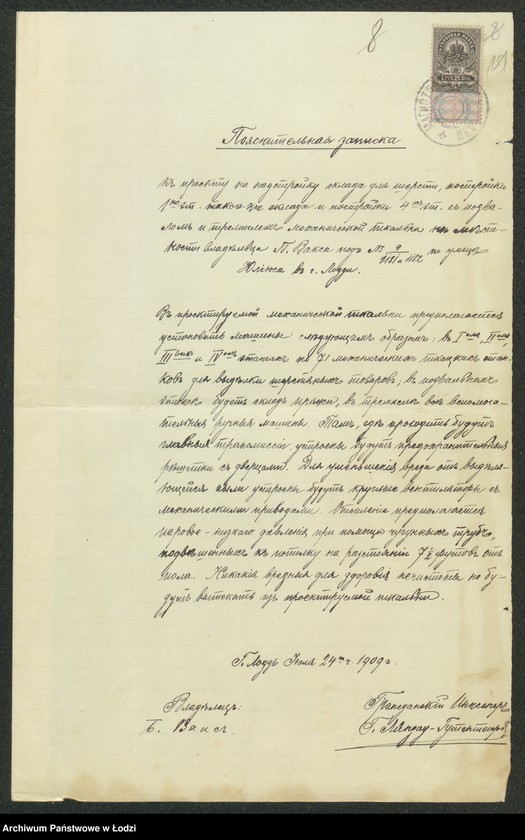 8
8
Пояснительная записка
къ проэкту на надстройку склада для шерсти, постройки
1го эт. такого же склада и постройки 4хъ эт. съ подва-
ломъ и тремпелемъ механической ткальни на мѣст-
ности владѣльца П. Вакса подъ № 9/1181 и 1182 по улицѣ
Юлiюса въ г. Лодзи.
Въ проэктируемой механической ткальни предполагается
установить машины слѣдующимъ образомъ: въ I омъ, II омъ,
III емъ и IV омъ этажахъ по 71 механическихъ ткацкихъ стан-
ковъ для выдѣлки шерстяныхъ товаровъ, въ подвальномъ
этажѣ будетъ складъ пряжи, въ тремпелѣ всѣ вспомога-
тельныя ручныя машины. Тамъ, гдѣ проходить будутъ
главныя трансмиссiи, устроены будутъ предохранительныя
рѣшетки съ дверцами. Для уменьшенiя вреда отъ выдѣля-
ющейся пыли устроены будутъ круглые вентиляторы съ
механическими приводами. Отопленiе предполагается
паровое-низкаго давленiя при помощи чугунныхъ трубъ,
подвѣшенныхъ къ потолку на разстоянiи 7 1/2 футовъ отъ
пола. Никакiя вредныя для здоровiя нечистоты не бу-
дутъ вытекать изъ проэктируемой ткальни.
Г. Лодзь Iюля 24го г. 1909 г.
Владѣлецъ:
Б. Ваксъ
Гражданскiй Инженеръ
Г. Ляндау-Гутентегеръ
Archiwum Państwowe w Łodzi